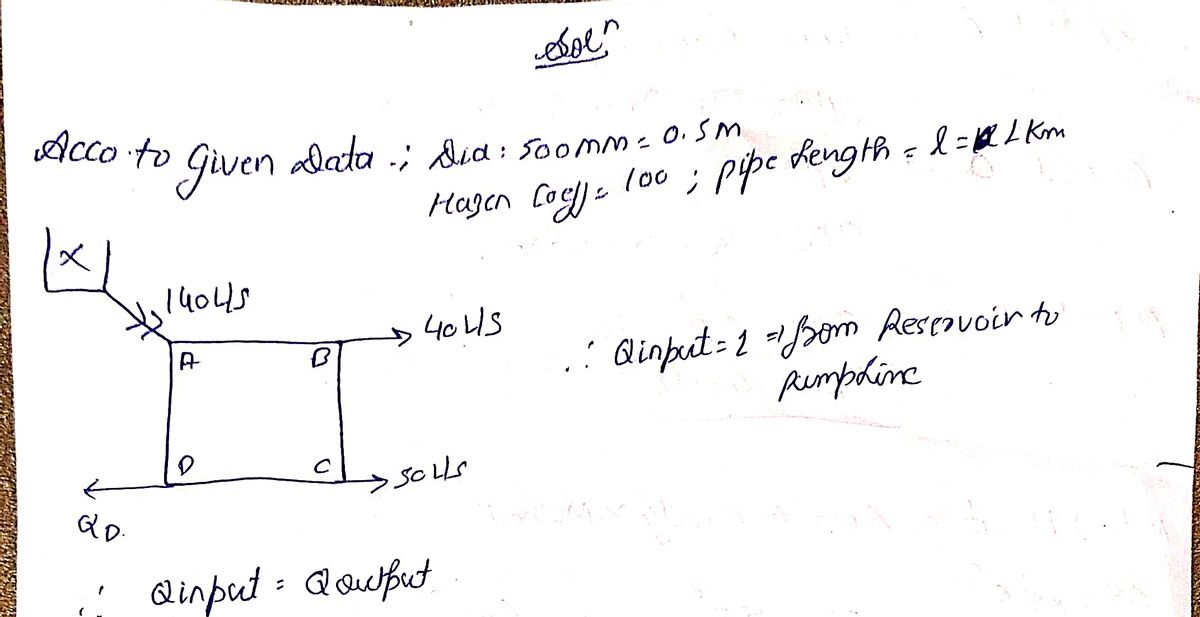 Solⁿ
Acco. to Given Data .; Dia: 500mm = 0.5m
Hazen Coeff = 100 ; pipe Length = l = 1 Km
X
140 L/S
40 L/S
A B
∴ Qinput = 1 ⇒ from Reservoir to
pumpline
D C
50 L/S
QD.
∴ Qinput = Qoutput